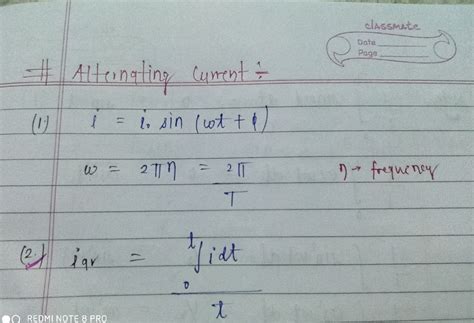 classmate
Date
Page
# Alternating Current ÷
(1) i = i₀ sin (ωt + ϕ)
ω = 2πη = 2π/T η → frequency
(2.) i av = ₀∫ᵗ i dt / t
REDMI NOTE 8 PRO